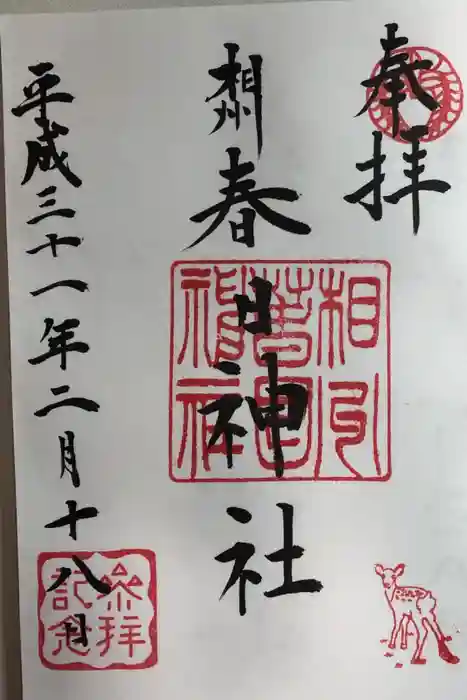 奉拝
相州
春日神社
相州
春日
神社
平成三十一年二月十八日
参拝
記念